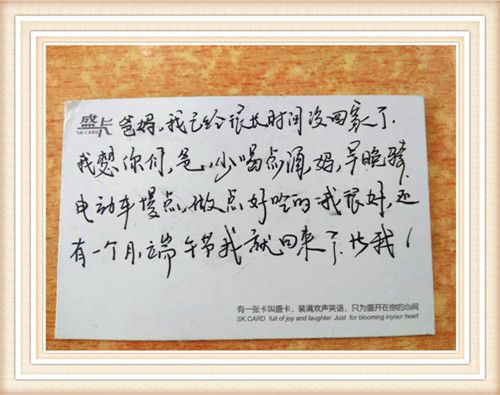 盛卡
SK.CARD
爸妈,我已经很长时间没回家了.
我想你们,爸,少喝点酒,妈,早晚骑
电动车慢点,做点好吃的,我很好,还
有一个月,端午节我就回来了.等我!
有一张卡叫盛卡,装满欢声笑语,只为盛开在你的心间
SK.CARD full of joy and laughter Just for blooming inyour heart